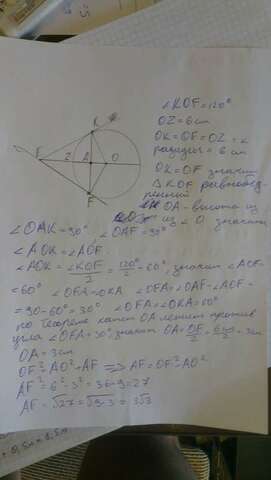 ∠KOF=120°
OZ=6см
OK=OF=OZ=
радиусы=6см
OK=OF значит
ΔKOF равнобед-
ренный
OA - высота из
из ∠O значит
K
E
Z
A
O
F
∠OAK=90° ∠OAF=90°
∠AOK=∠AOF
∠AOK=∠KOF/2=120°/2=60°, значит ∠AOF
=60° ∠OFA=∠OKA ∠OFA=∠OAF-∠AOF=
=90-60=30° ∠OFA=∠OKA=60°
по Теореме катет OA лежит против
угла ∠OFA=30° значит OA=OF/2=6см/2=3см
OA=3см
OF²=AO²+AF² => AF²=OF²-AO²
AF²=6²-3²=36-9=27
AF=√27=√9·3=3√3